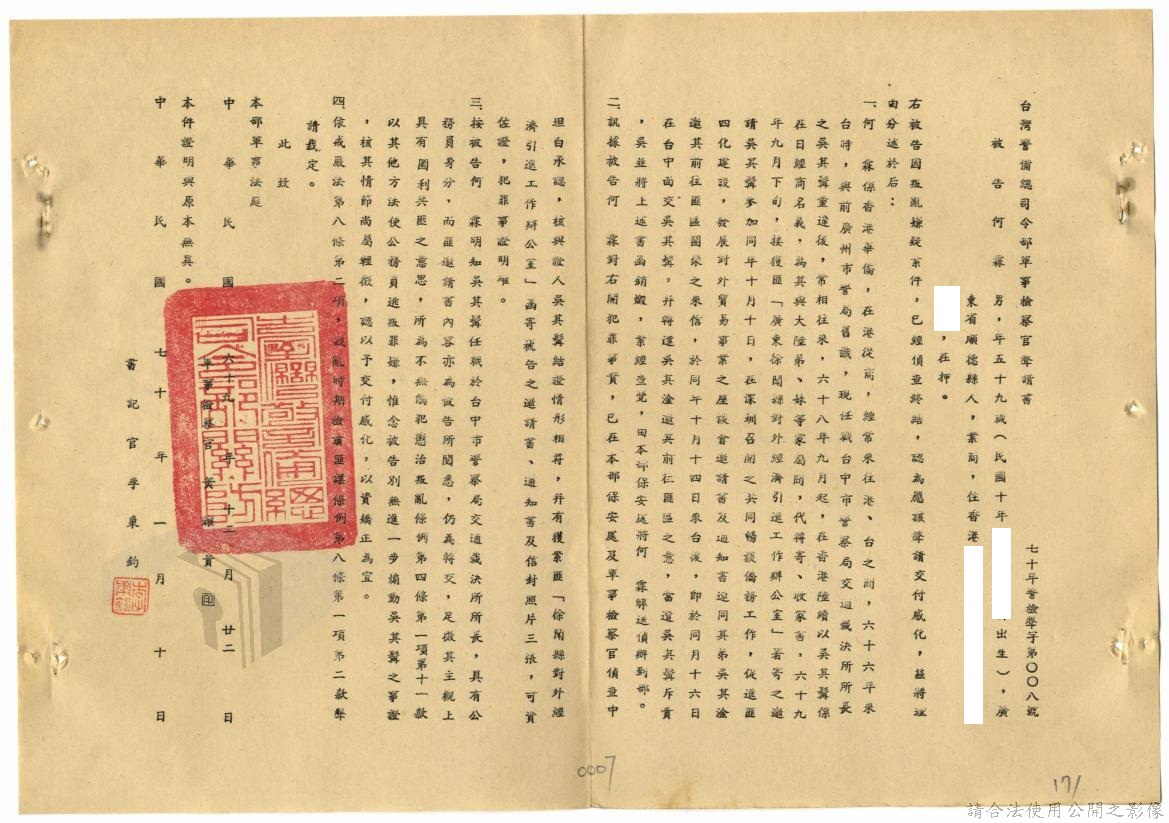 台灣警備總司令部軍事檢察官聲請書
七十年警檢聲字第〇〇八號
被告何 霖 男,年五十九歲(民國十年 出生),廣
東省順德縣人,業商,住香港
,在押。
右被告因叛亂嫌疑案件,已經偵查終結,認為應該聲請交付感化,茲將理
由分述於后:
一、何 霖係香港華僑,在港從商,經常來往港、台之間,六十六年來
台時,與前廣州市警局舊識,現任職台中市警察局交通裁決所所長
之吳其髯重逢後,常相往來,六十八年九月起,在香港陸續以吳其髯係
在日經商名義,為其與大陸弟、妹等家屬間,代轉寄、收家書,六十九
年九月下旬,接獲匪「廣東徐聞縣對外經濟引進工作辦公室」署寄之邀
請吳其髯參加同年十月十日,在深圳召開之共同暢談僑務工作,促進匪
四化建設,發展對外貿易事業之座談會邀請書及通知書迎同其弟吳其淦
邀其前往匪區團聚之來信,於同年十月十四日來台後,即於同月十六日
在台中面交吳其髯,并轉達吳其淦邀其前住匪區之意,當遭吳其髯斥責
,吳並將上述書函銷燬,案經查覺,由本部保安處將何 霖解送偵辦到部。
二、訊據被告何 霖對右開犯罪事實,已在本部保安處及軍事檢察官偵查中
坦白承認,核與證人吳其髯結證情形相符,并有獲案匪「徐聞縣對外經
濟引進工作辦公室」函寄被告之邀請書、通知書及信封照片三張,可資
佐證,犯罪事證明確。
三、按被告何 霖明知吳其髯任職於台中市警察局交通裁決所所長,具有公
務員身分,而匪邀請書內容亦為被告所閱悉,仍為轉交,足徵其主觀上
具有圖利共匪之意思,所為不無觸犯懲治叛亂條例第四條第一項第十一款
以其他方法使公務員逃叛罪嫌,惟念被告別無進一步煽動吳其髯之事證
,核其情節尚屬輕微,認以予交付感化,以資矯正為宜。
四、依戒嚴法第八條第二項,戡亂時期檢肅匪諜條例第八條第一項第二款聲
請裁定。
此 致
本部軍事法庭
中 華 民 國 六十九 年 十二 月 廿二 日
軍事檢察官 黃 貴 印
本件證明與原本無異。
中 華 民 國 七 十 年 一 月 十 日
書 記 官 李 秉 鈞
0007
171
請合法使用公開之影像